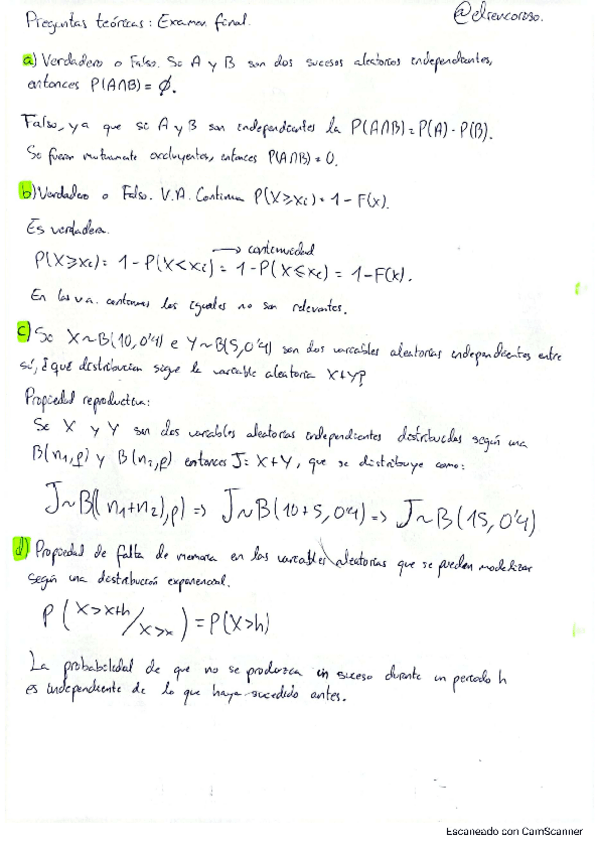 Preguntas teóricas: Examen final.
@elrencoroso.
a) Verdadero o Falso. Si A y B son dos sucesos aleatorios independientes,
entonces P(A∩B) = Ø.
Falso, ya que si A y B son independientes la P(A∩B) = P(A) · P(B).
Si fueran mutuamente excluyentes, entonces P(A∩B) = 0.
b) Verdadero o Falso. V.A. Continua P(X⩾xi) = 1 - F(x).
Es verdadera.
→ continuidad
P(X⩾xi) = 1 - P(X<xi) = 1 - P(X⩽xi) = 1 - F(x).
En las v.a. continuas los iguales no son relevantes.
c) Si X~B(10, 0'4) e Y~B(5, 0'4) son dos variables aleatorias independientes entre
sí, ¿qué distribución sigue la variable aleatoria X+Y?
Propiedad reproductiva:
Si X y Y son dos variables aleatorias independientes distribuidas según una
B(n1,p) y B(n2,p) entonces J = X+Y, que se distribuye como:
J~B((n1+n2),p) => J~B(10+5, 0'4) => J~B(15, 0'4)
d) Propiedad de falta de memoria en las variables aleatorias que se pueden modelizar
según una distribución exponencial.
P(X>x+h / X>x) = P(X>h)
La probabilidad de que no se produzca un suceso durante un periodo h
es independiente de lo que haya sucedido antes.
Escaneado con CamScanner